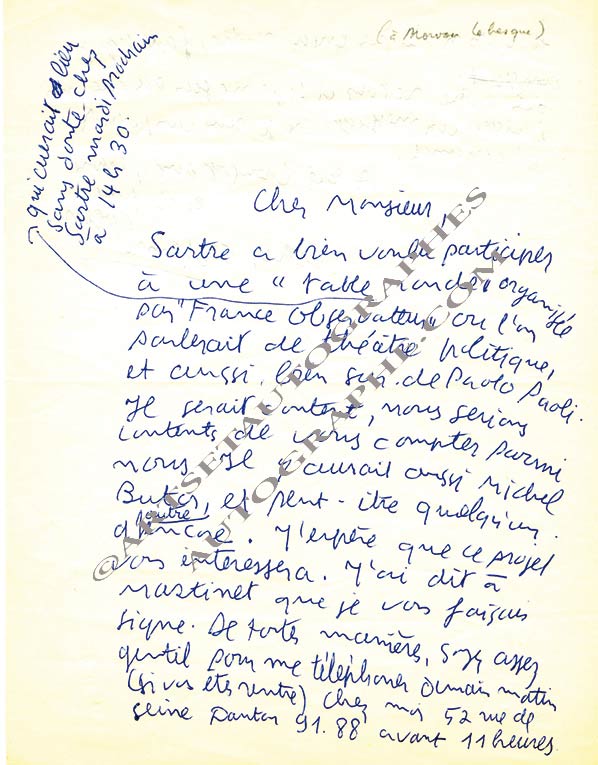 (à Morvan Lebesque)
qui aurait lieu
sans doute chez
Sartre mardi prochain
à 14h 30.
Cher Monsieur,
Sartre a bien voulu participer
à une "table ronde" organisée
par "France Observateur" où l'on
parlerait de théâtre politique,
et aussi, bien sûr, de Paolo Paoli.
Il serait content, nous serions
contents de vous compter parmi
nous. Il y aurait aussi Michel
Butor, et peut-être quelqu'un
d'autre
encore. J'espère que ce projet
vous intéressera. J'ai dit à
Martinet que je vous faisais
signe. De toutes manières, soyez assez
gentil pour me téléphoner demain matin
(si vous êtes rentré) chez moi 52 rue de
seine Danton 91.88 avant 11 heures.
@ARTSETAUTOGRAPHES
AUTOGRAPHE.COM